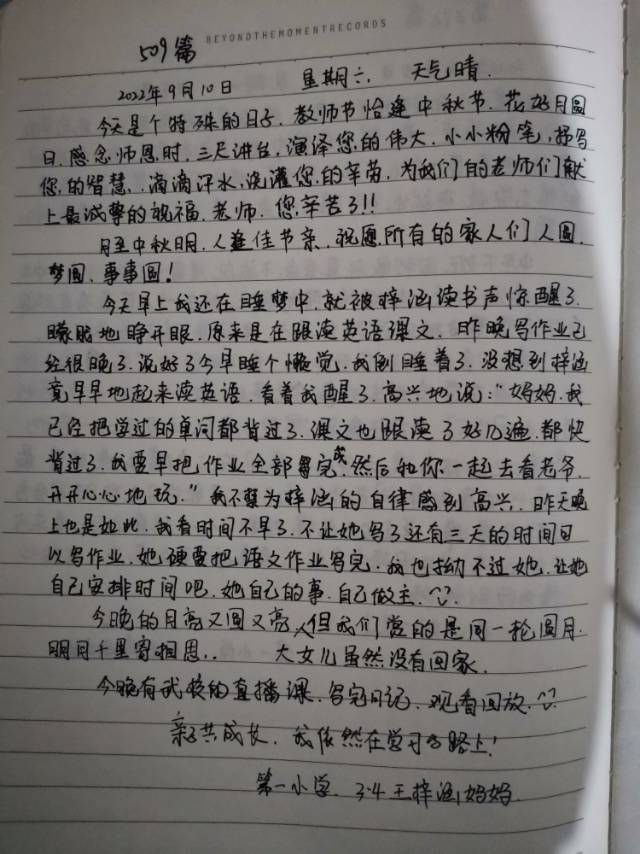 BEYONDTHEMOMENTRECORDS
509篇
2022年9月10日 星期六 天气晴.
今天是个特殊的日子.教师节恰逢中秋节.花好月圆
日.感念师恩时.三尺讲台,演泽您的伟大.小小粉笔,抒写
您的智慧.滴滴汗水,浇灌您的辛劳.为我们的老师们献
上最诚挚的祝福.老师.您辛苦了!!
月至中秋明.人逢佳节亲.祝愿所有的家人们人圆.
梦圆.事事圆!
今天早上我还在睡梦中.就被梓涵读书声惊醒了.
朦胧地睁开眼.原来是在跟读英语课文.昨晚写作业已
经很晚了.说好了今早睡个懒觉.我倒睡着了.没想到梓涵
竟早早地起来读英语.看着我醒了.高兴地说:"妈妈.我
已经把学过的单词都背过了.课文也跟读了好几遍.都快
背过了.我要早把作业全部写完成.然后和你一起去看老爷.
开开心心地玩."我不禁为梓涵的自律感到高兴.昨天晚
上也是如此.我看时间不早了.不让她写了还有三天的时间可
以写作业.她硬要把语文作业写完.我也拗不过她.让她
自己安排时间吧.她自己的事.自己做主.
今晚的月亮又圆又亮,但我们赏的是同一轮圆月.
明月千里寄相思.. 大女儿虽然没有回家.
今晚有武校的直播课.写完日记.观看回放.
亲子共成长.我依然在学习的路上!
第一小学. 3.4 王梓涵妈妈.